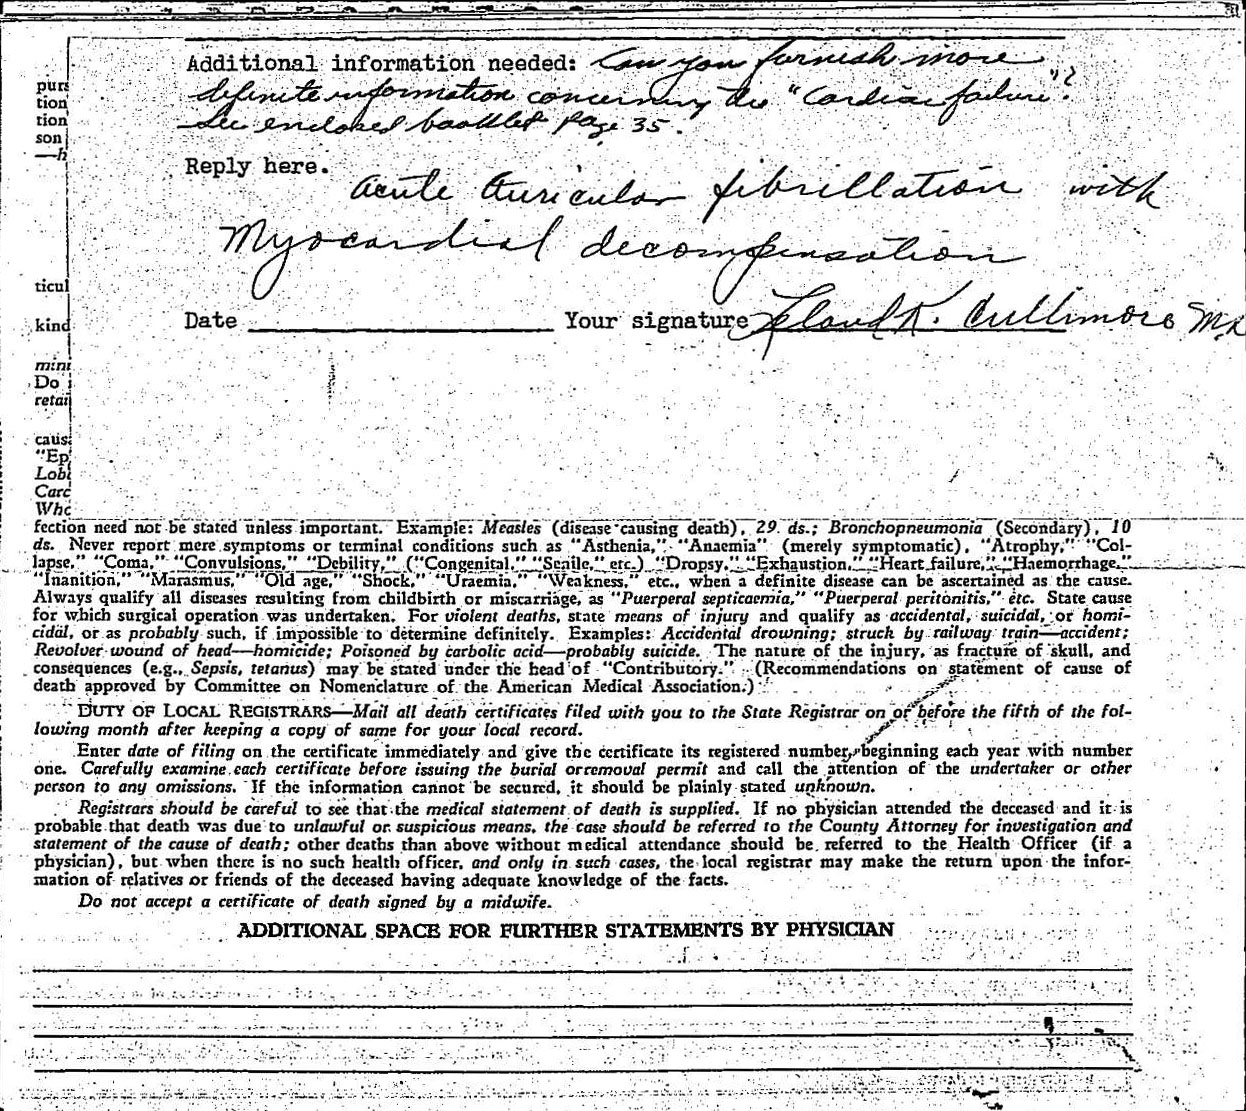 Additional information needed: Can you furnish more
definite information concerning the "Cardiac failure"?
See enclosed booklet page 35.
purs
tion
tion
son
—h
Reply here.
acute auricular fibrillation with
Myocardial decompensation
ticul
kind
Date Your signature K. Cullimore MD
mini
Do
retai
caus
"Ep
Lobi
Carc
Whc
fection need not be stated unless important. Example: Measles (disease causing death), 29 ds.; Bronchopneumonia (Secondary), 10
ds. Never report mere symptoms or terminal conditions such as "Asthenia," "Anaemia" (merely symptomatic), "Atrophy," "Col-
lapse," "Coma," "Convulsions," "Debility," ("Congenital," "Senile," etc.) "Dropsy," "Exhaustion," "Heart failure," "Haemorrhage,"
"Inanition," "Marasmus," "Old age," "Shock," "Uraemia," "Weakness," etc., when a definite disease can be ascertained as the cause.
Always qualify all diseases resulting from childbirth or miscarriage, as "Puerperal septicaemia," "Puerperal peritonitis," etc. State cause
for which surgical operation was undertaken. For violent deaths, state means of injury and qualify as accidental, suicidal, or homi-
cidal, or as probably such, if impossible to determine definitely. Examples: Accidental drowning; struck by railway train—accident;
Revolver wound of head—homicide; Poisoned by carbolic acid—probably suicide. The nature of the injury, as fracture of skull, and
consequences (e.g., Sepsis, tetanus) may be stated under the head of "Contributory." (Recommendations on statement of cause of
death approved by Committee on Nomenclature of the American Medical Association.)
DUTY OF LOCAL REGISTRARS—Mail all death certificates filed with you to the State Registrar on or before the fifth of the fol-
lowing month after keeping a copy of same for your local record.
Enter date of filing on the certificate immediately and give the certificate its registered number, beginning each year with number
one. Carefully examine each certificate before issuing the burial or removal permit and call the attention of the undertaker or other
person to any omissions. If the information cannot be secured, it should be plainly stated unknown.
Registrars should be careful to see that the medical statement of death is supplied. If no physician attended the deceased and it is
probable that death was due to unlawful or suspicious means, the case should be referred to the County Attorney for investigation and
statement of the cause of death; other deaths than above without medical attendance should be referred to the Health Officer (if a
physician), but when there is no such health officer, and only in such cases, the local registrar may make the return upon the infor-
mation of relatives or friends of the deceased having adequate knowledge of the facts.
Do not accept a certificate of death signed by a midwife.
ADDITIONAL SPACE FOR FURTHER STATEMENTS BY PHYSICIAN